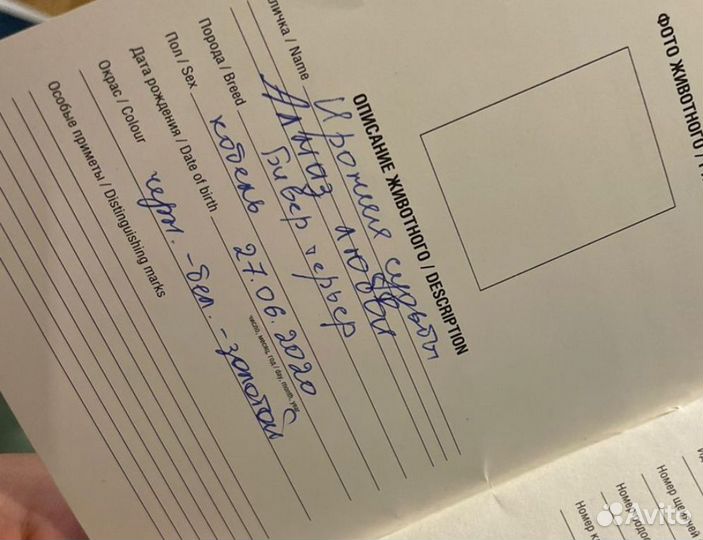 ОПИСАНИЕ ЖИВОТНОГО / DESCRIPTION
личка / Name Ирония судьбы
Алмаз любви
Порода / Breed Бивер терьер
Пол / Sex кобель
Дата рождения / Date of birth 27.06.2020
число, месяц, год / day, month, year
Окрас / Colour черн. - бел. - золотой
Особые приметы / Distinguishing marks
ФОТО ЖИВОТНОГО /
Номер
Номер
Номер
Avito